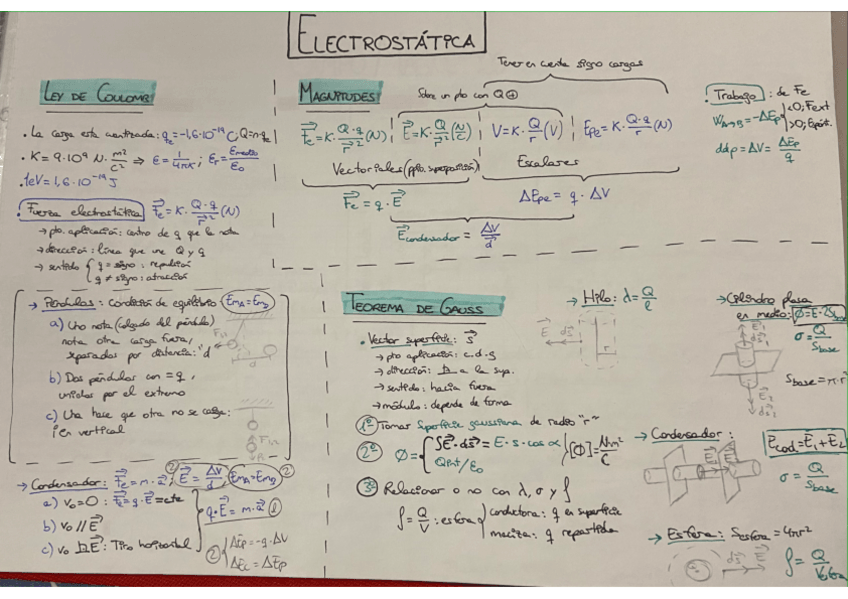 ELECTROSTÁTICA
LEY DE COULOMB
. La carga está cuantizada: qₑ=-1,6·10⁻¹⁹C; Q=n·qₑ
. K = 9·10⁹ N·m²/C² ⇒ ε = 1/4πK ; εᵣ = εmedio/ε₀
. 1eV = 1,6·10⁻¹⁹ J
. Fuerza electrostática F⃗e = K· Q·q/r⃗² (N)
→ pto. aplicación: centro de q que la nota
→ dirección: línea que une Q y q
→ sentido { q = signo: repulsión
q ≠ signo: atracción
→ Péndulos: Condición de equilibrio (EmA = EmB)
a) Uno nota (colgado del péndulo)
nota otra carga fuera,
separados por distancia: "d"
b) Dos péndulos con = q,
unidos por el extremo
c) Una hace que otra no se caiga:
¡En vertical
→ Condensador: F⃗e = m·a⃗ ; ② E⃗ = ΔV/d⃗ ; (EmA = EmB) ②
a) V₀=0 : F⃗e = q·E⃗ = cte
b) V₀ // E⃗
c) V₀ ⊥ E⃗ : Tiro horizontal
q·E⃗ = m·a⃗ ①
② { ΔEp = -q·ΔV
ΔEc = ΔEp
MAGNITUDES
Tener en cuenta signo cargas
Sobre un pto con Q⊕
F⃗e = K· Q·q/r⃗² (N) | E⃗ = K· Q/r⃗² (N/C) | V = K· Q/r (V) | Epe = K· Q·q/r (N)
Vectoriales (ppio. superposición)
Escalares
F⃗e = q·E⃗
ΔEpe = q·ΔV
E⃗condensador = ΔV/d⃗
Trabajo : de Fe
WA→B = -ΔEp { <0; Fext
>0; Espont.
ddp = ΔV = ΔEp/q
TEOREMA DE GAUSS
. Vector superficie: s⃗
→ pto aplicación: c.d.g
→ dirección: ⊥ a la sup.
→ sentido: hacia fuera
→ módulo: depende de forma
1º Tomar superficie gaussiana de radio "r"
2º Φ = { ∫E⃗·ds⃗ = E·s·cos α
Qint/ε₀
[Φ] = Nm²/C
3º Relacionar o no con λ, σ y ρ
ρ = Q/V : esfera { conductora: q en superficie
maciza: q repartida
→ Hilo: λ = Q/ℓ
E⃗ ds⃗
r
→ Cilindro plasa
en medio: Φ = E·2Sbase
σ = Q/Sbase
Sbase = π·r²
→ Condensador :
E⃗cod. = E⃗₁ + E⃗₂
σ = Q/Sbase
→ Esfera: Sesfera = 4πr²
ds⃗ E⃗
ρ = Q/Vesfera